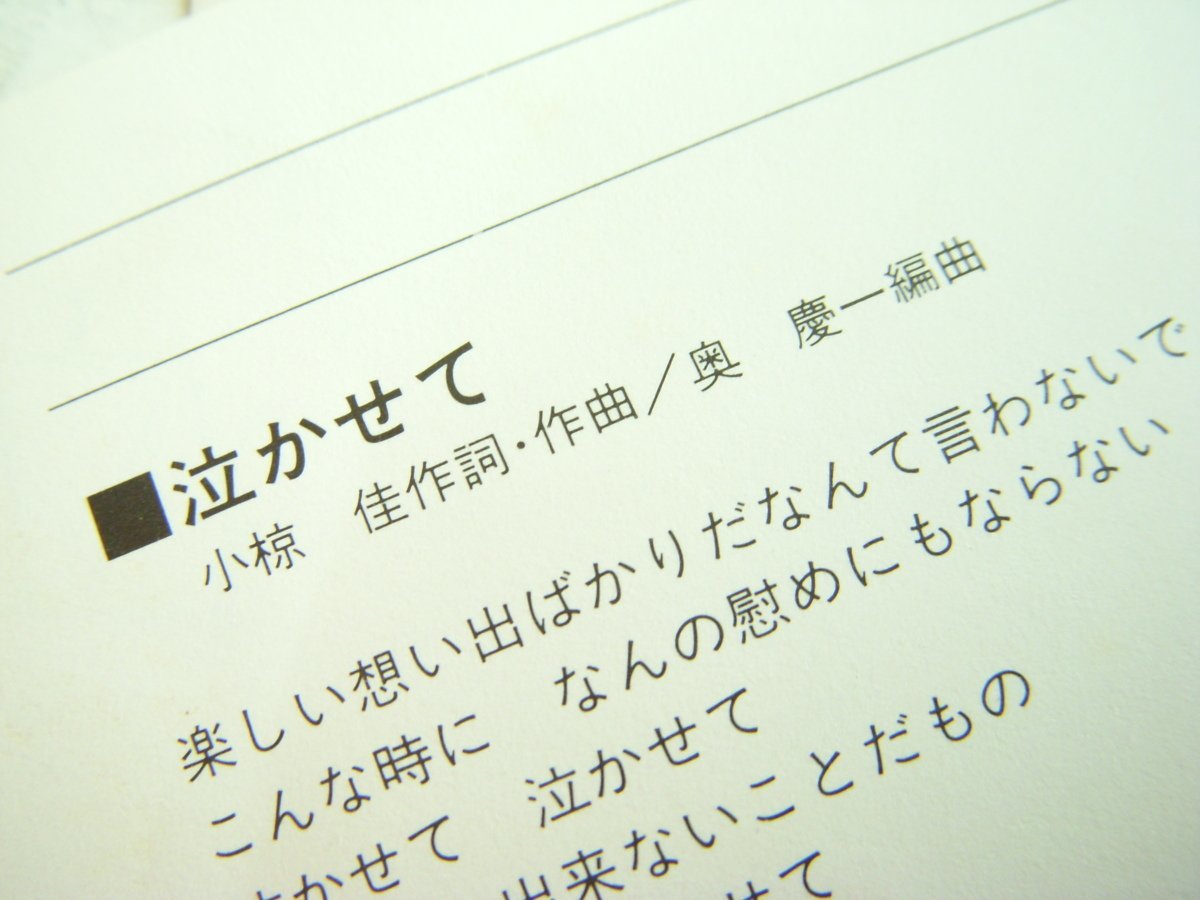 ■泣かせて
小椋　佳作詞・作曲／奥　慶一編曲
楽しい想い出ばかりだなんて言わないで
こんな時に　なんの慰めにもならない
泣かせて　泣かせて
出来ないことだもの
せて